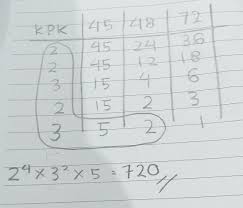 KPK 45 48 72
2 45 24 36
2 45 12 18
3 15 4 6
2 15 2 3
3 5 2 1
2⁴ × 3² × 5 = 720